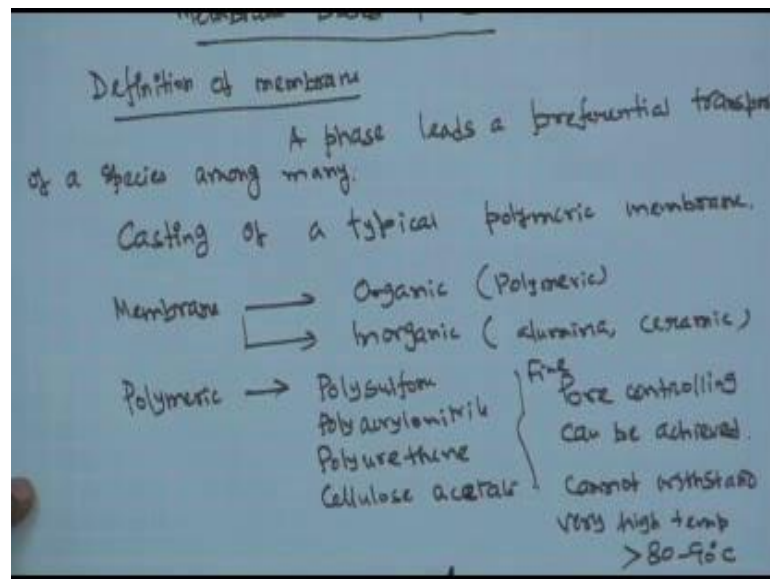 Definition of membrane
A phase leads a preferential transpo
of a species among many.
Casting of a typical polymeric membrane.
Membrane → Organic (Polymeric)
→ Inorganic (alumina, ceramic)
Polymeric → Polysulfone
Polyacrylonitrile
Polyurethene
Cellulose acetate
Fine
Pore controlling
can be achieved.
Cannot withstand
very high temp
>80-90°C